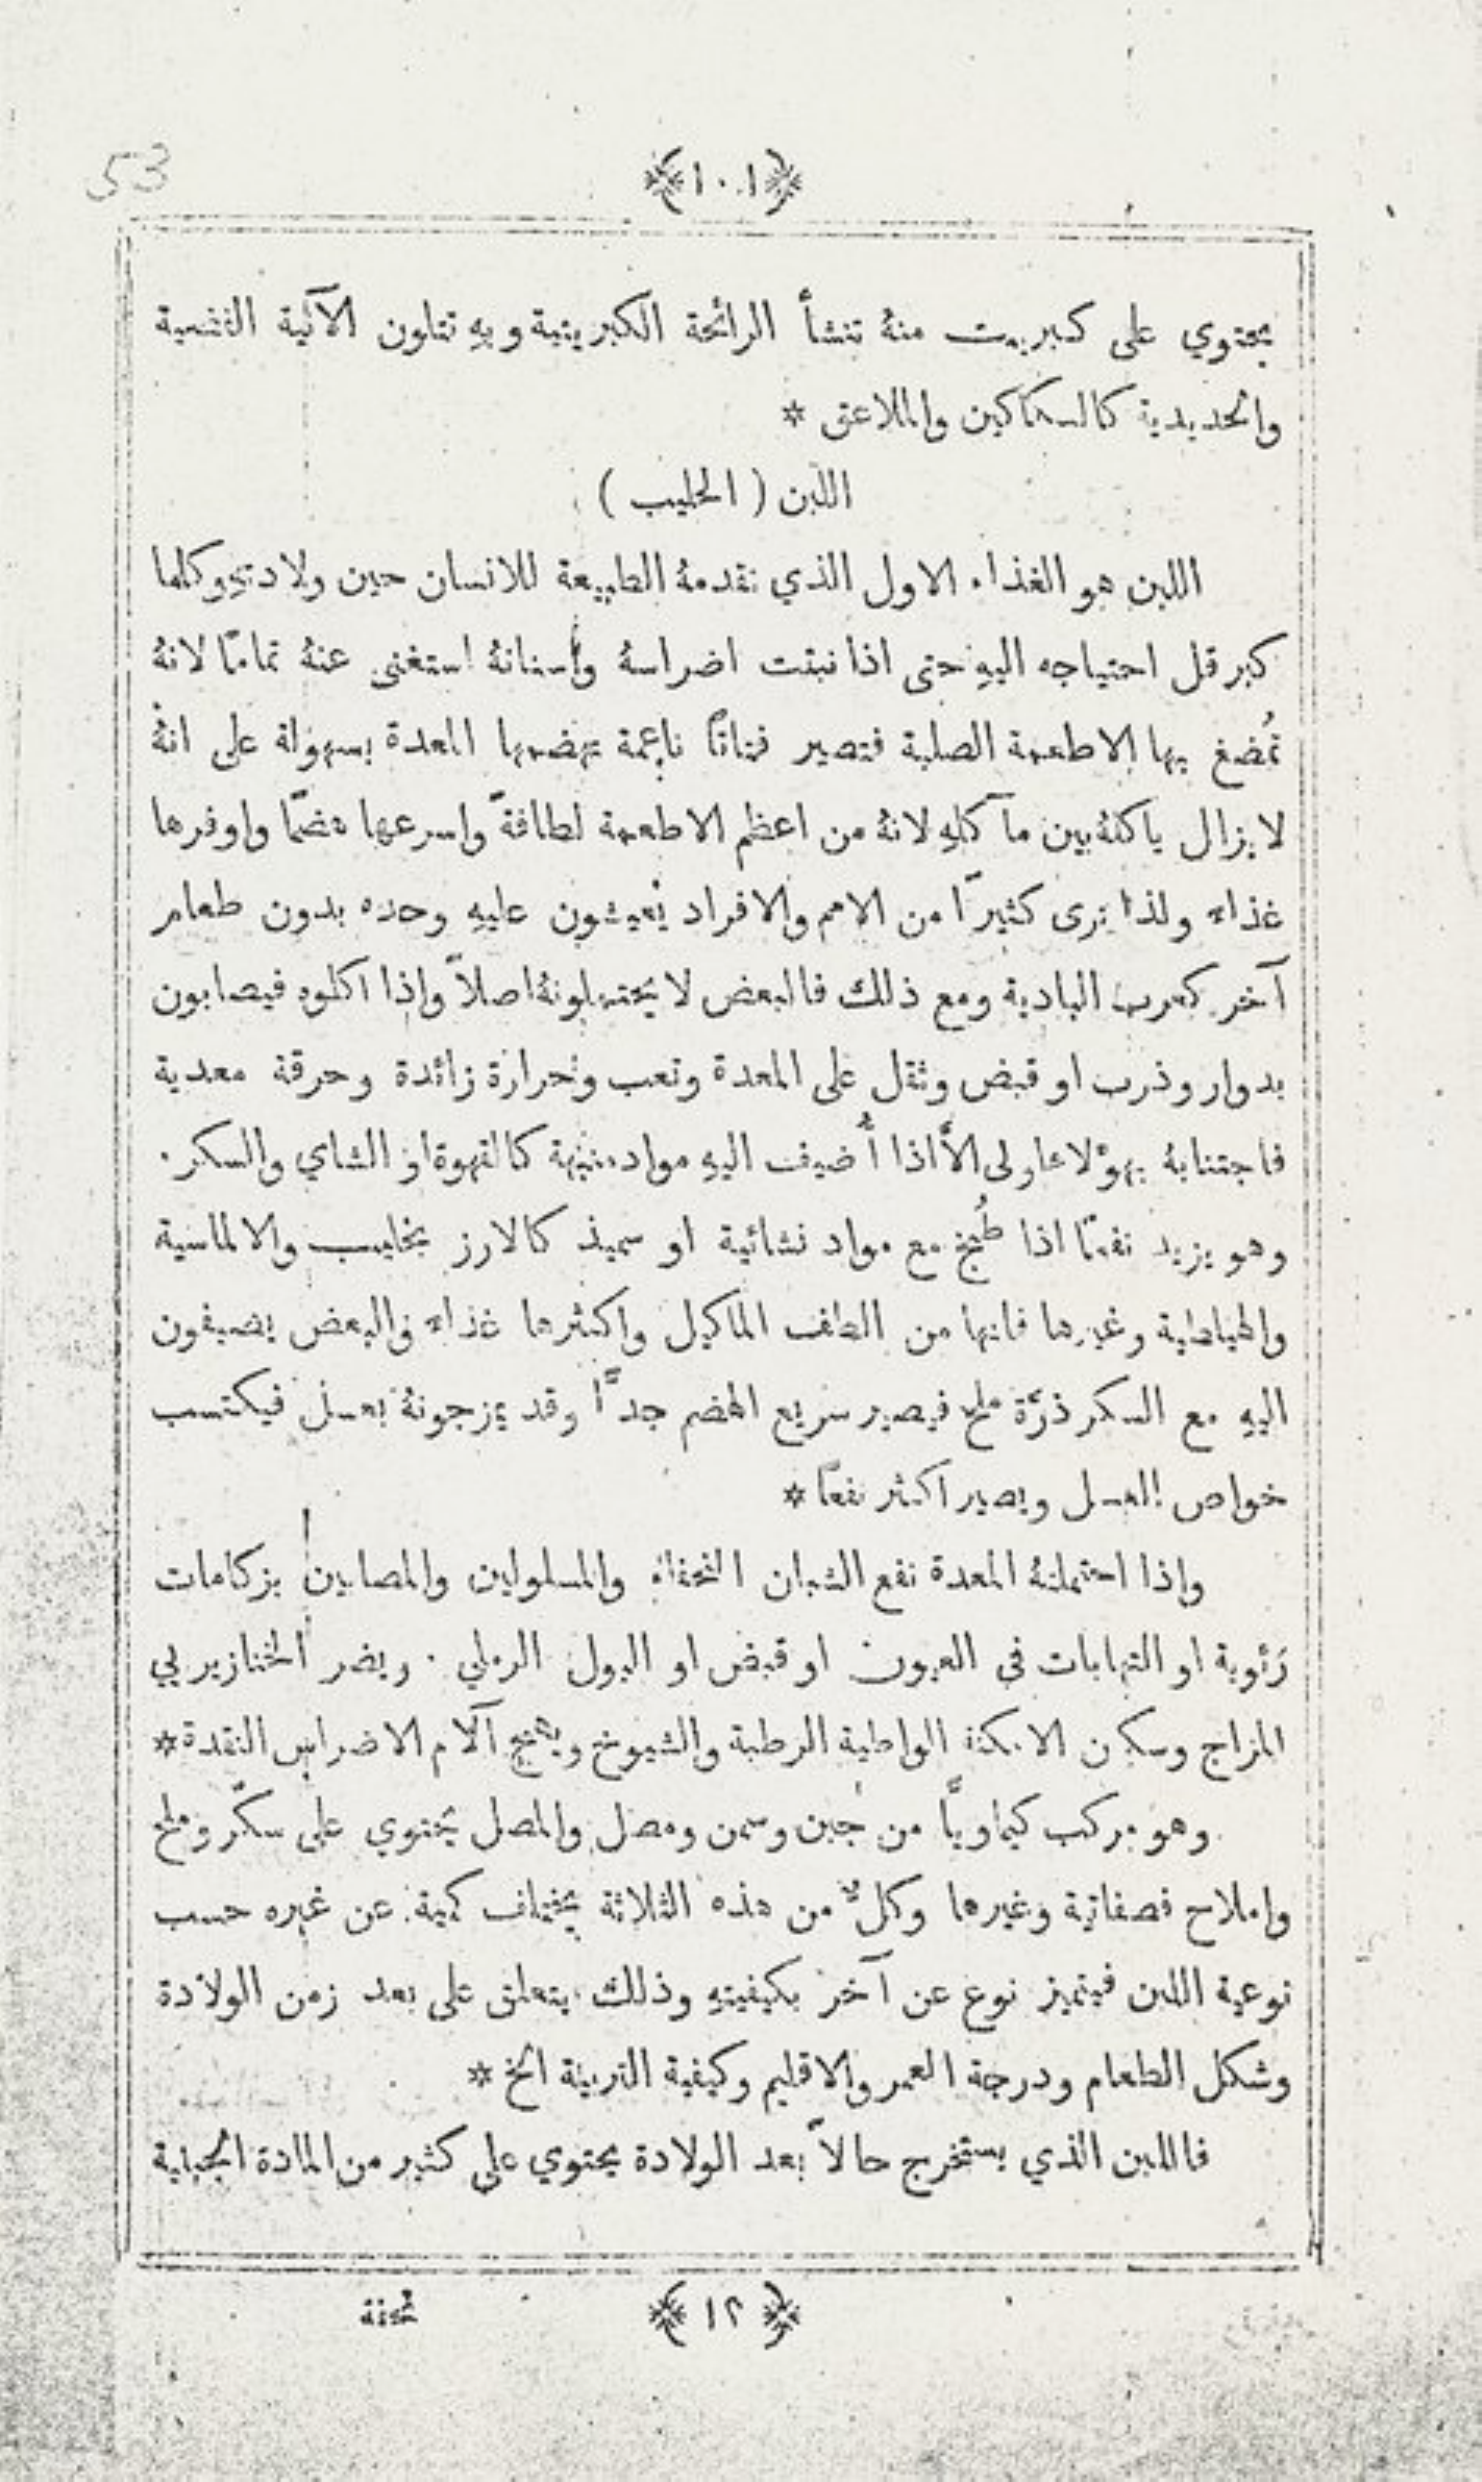 53
﴿١٠١﴾
يحتوي على كبريت منهُ تنشأ الرائحة الكبريتية وبهِ تتلون الآنية الفضية
والحديدية كالسكاكين والملاعق *
اللبن ( الحليب )
اللبن هو الغذاء الاول الذي تقدمهُ الطبيعة للانسان حين ولادتهِ وكلما
كبر قل احتياجه اليهِ حتى اذا نبتت اضراسهُ وأسنانهُ استغنى عنهُ تمامًا لانهُ
تُمضغ بها الاطعمة الصلبة فتصير فتاتًا ناعمة تهضمها المعدة بسهولة على انهُ
لا يزال ياكلهُ بين مآكلهِ لانهُ من اعظم الاطعمة لطافةً واسرعها هضمًا واوفرها
غذاء ولذا نرى كثيرًا من الامم والافراد يعيشون عليهِ وحده بدون طعام
آخر كعرب البادية ومع ذلك فالبعض لا يحتملونهُ اصلاً وإذا اكلوه فيصابون
بدوار وذرب او قبض وثقل على المعدة وتعب وحرارة زائدة وحرقة معدية
فاجتنابهُ بهؤلاء اولى الاَّ اذا أُضيف اليهِ مواد منبهة كالقهوة او الشاي والسكر .
وهو يزيد نفعًا اذا طُبخ مع مواد نشائية او سميذ كالارز بحليب والالماسية
والهياطية وغيرها فانها من الطف المآكيل واكثرها غذاء والبعض يضيفون
اليهِ مع السكر ذرَّة ملح فيصير سريع الهضم جدًّا وقد يمزجونهُ بعسل فيكتسب
خواص العسل ويصير اكثر نفعًا *
وإذا احتملتهُ المعدة نفع الشبان النحفاء والمسلولين والمصابين بزكامات
رئوية او التهابات في العيون او قبض او البول الرملي . ويضر الخنازيريي
المزاج وسكان الامكنة الواطية الرطبة والشيوخ ويهيج آلام الاضراس النقدة *
وهو مركب كيماويًّا من جبن وسمن ومصل والمصل يحتوي على سكَّر وملح
واملاح فصفاتية وغيرها وكلٌّ من هذه الثلاثة يختلف كمية عن غيره حسب
نوعية اللبن فيتميز نوع عن آخر بكيفيتهِ وذلك يتعلق على بعد زمن الولادة
وشكل الطعام ودرجة العمر والاقليم وكيفية التربية الخ *
فاللبن الذي يستخرج حالاً بعد الولادة يحتوي على كثير من المادة الجبنية
﴿١٢﴾